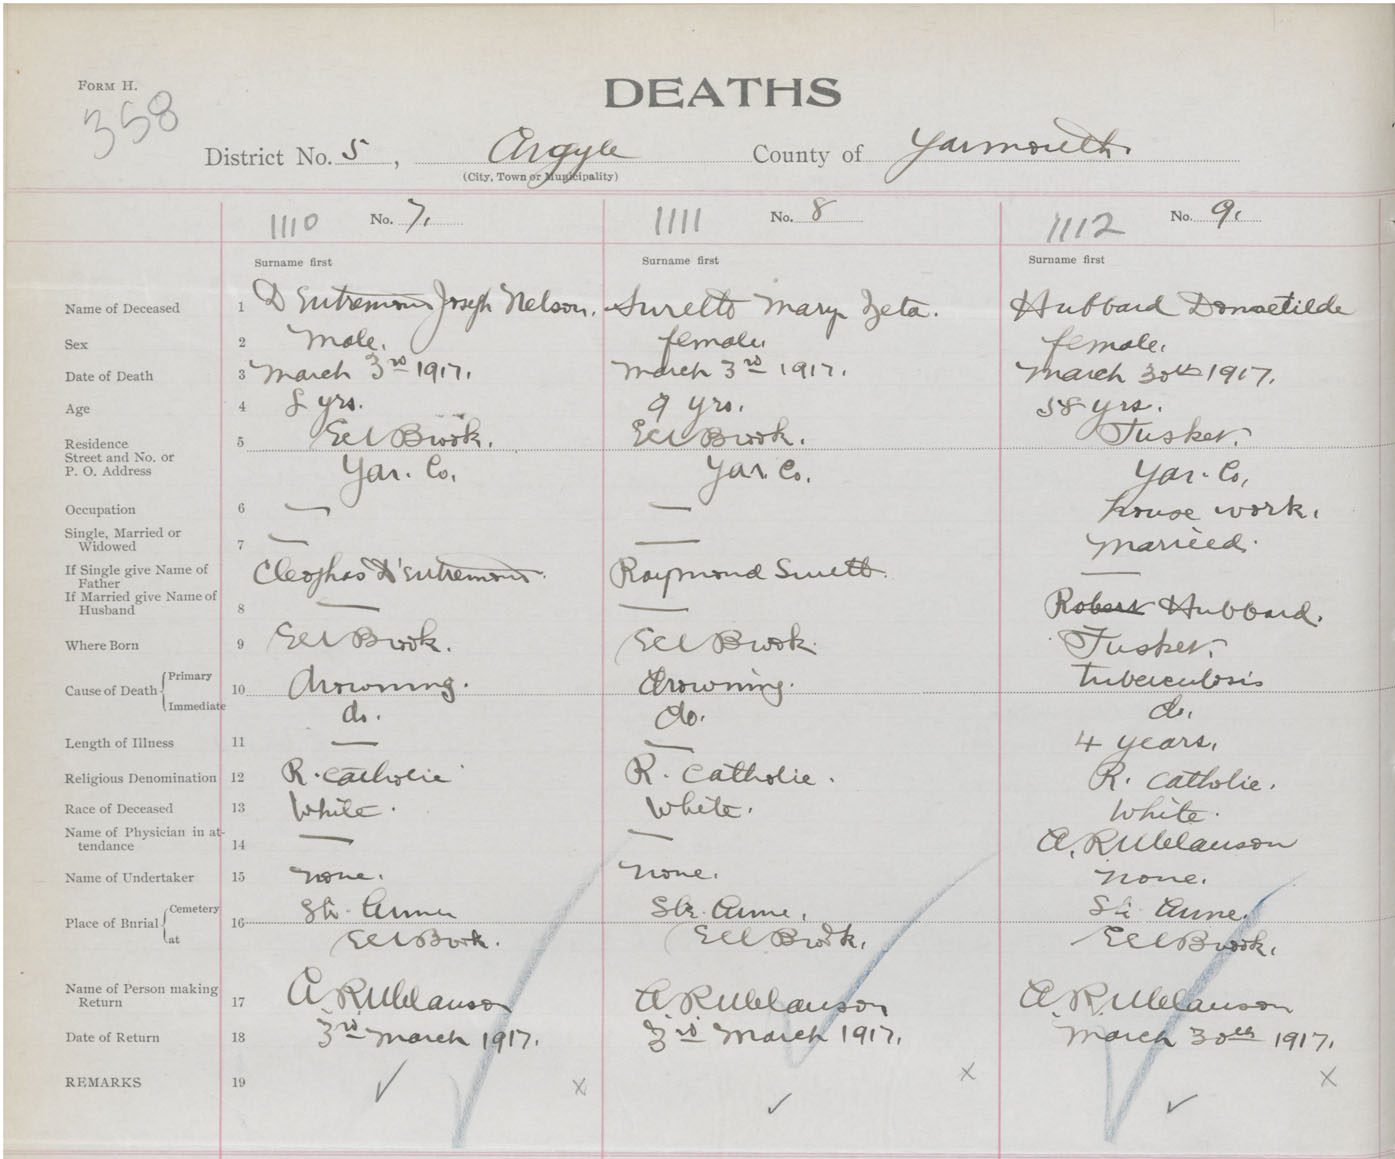 FORM H.
DEATHS
358
District No. 5, Argyle County of Yarmouth.
(City, Town or Municipality)
1110 No. 7. 1111 No. 8 1112 No. 9.
Surname first Surname first Surname first
Name of Deceased 1 D Entremont Joseph Nelson. Surette Mary Zeta. Hubbard Domatilde
Sex 2 male. female. female.
Date of Death 3 March 3rd 1917. March 3rd 1917. March 30th 1917.
Age 4 8 yrs. 9 yrs. 58 yrs.
Residence 5 Eel Brook. Eel Brook. Tusket.
Street and No. or
P. O. Address Yar. Co. Yar. Co. Yar. Co.
Occupation 6 — — house work.
Single, Married or
Widowed 7 — — married.
If Single give Name of
Father Cleophas D'Entremont. Raymond Surette. —
If Married give Name of
Husband 8 — — Robert Hubbard.
Where Born 9 Eel Brook. Eel Brook. Tusket.
Cause of Death Primary 10 drowning. drowning. tuberculosis
Immediate do. do. do.
Length of Illness 11 — — 4 years.
Religious Denomination 12 R. Catholic R. Catholic. R. Catholic.
Race of Deceased 13 White. White. White.
Name of Physician in at-
tendance 14 — — A. R. Melanson
Name of Undertaker 15 none. none. none.
Place of Burial Cemetery 16 Ste. Anne Ste. Anne. Ste. Anne.
at Eel Brook. Eel Brook. Eel Brook.
Name of Person making
Return 17 A. R. Melanson A. R. Melanson A. R. Melanson
Date of Return 18 3rd March 1917. 3rd March 1917. March 30th 1917.
REMARKS 19 ✓ x ✓ x ✓ x